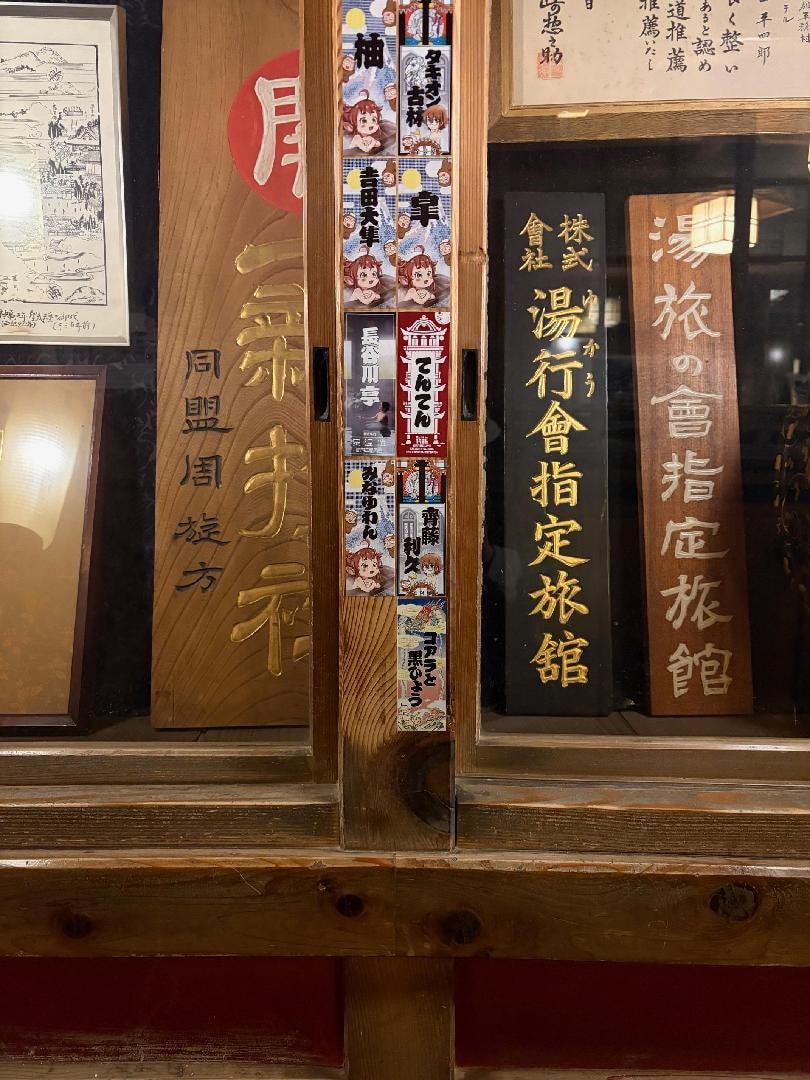 同盟周旋方
一新講社
柚
タキオン
古林
吉田大隼
皐
長谷川 亭
てんてん
みなゆわん
齊藤
利久
コアラと
黒ひょう
株式
會社
ゆかう
湯行會指定旅舘
湯旅の會指定旅館
平四郎
く整い
あると認め
道推薦
推薦いたし
崎惣之助